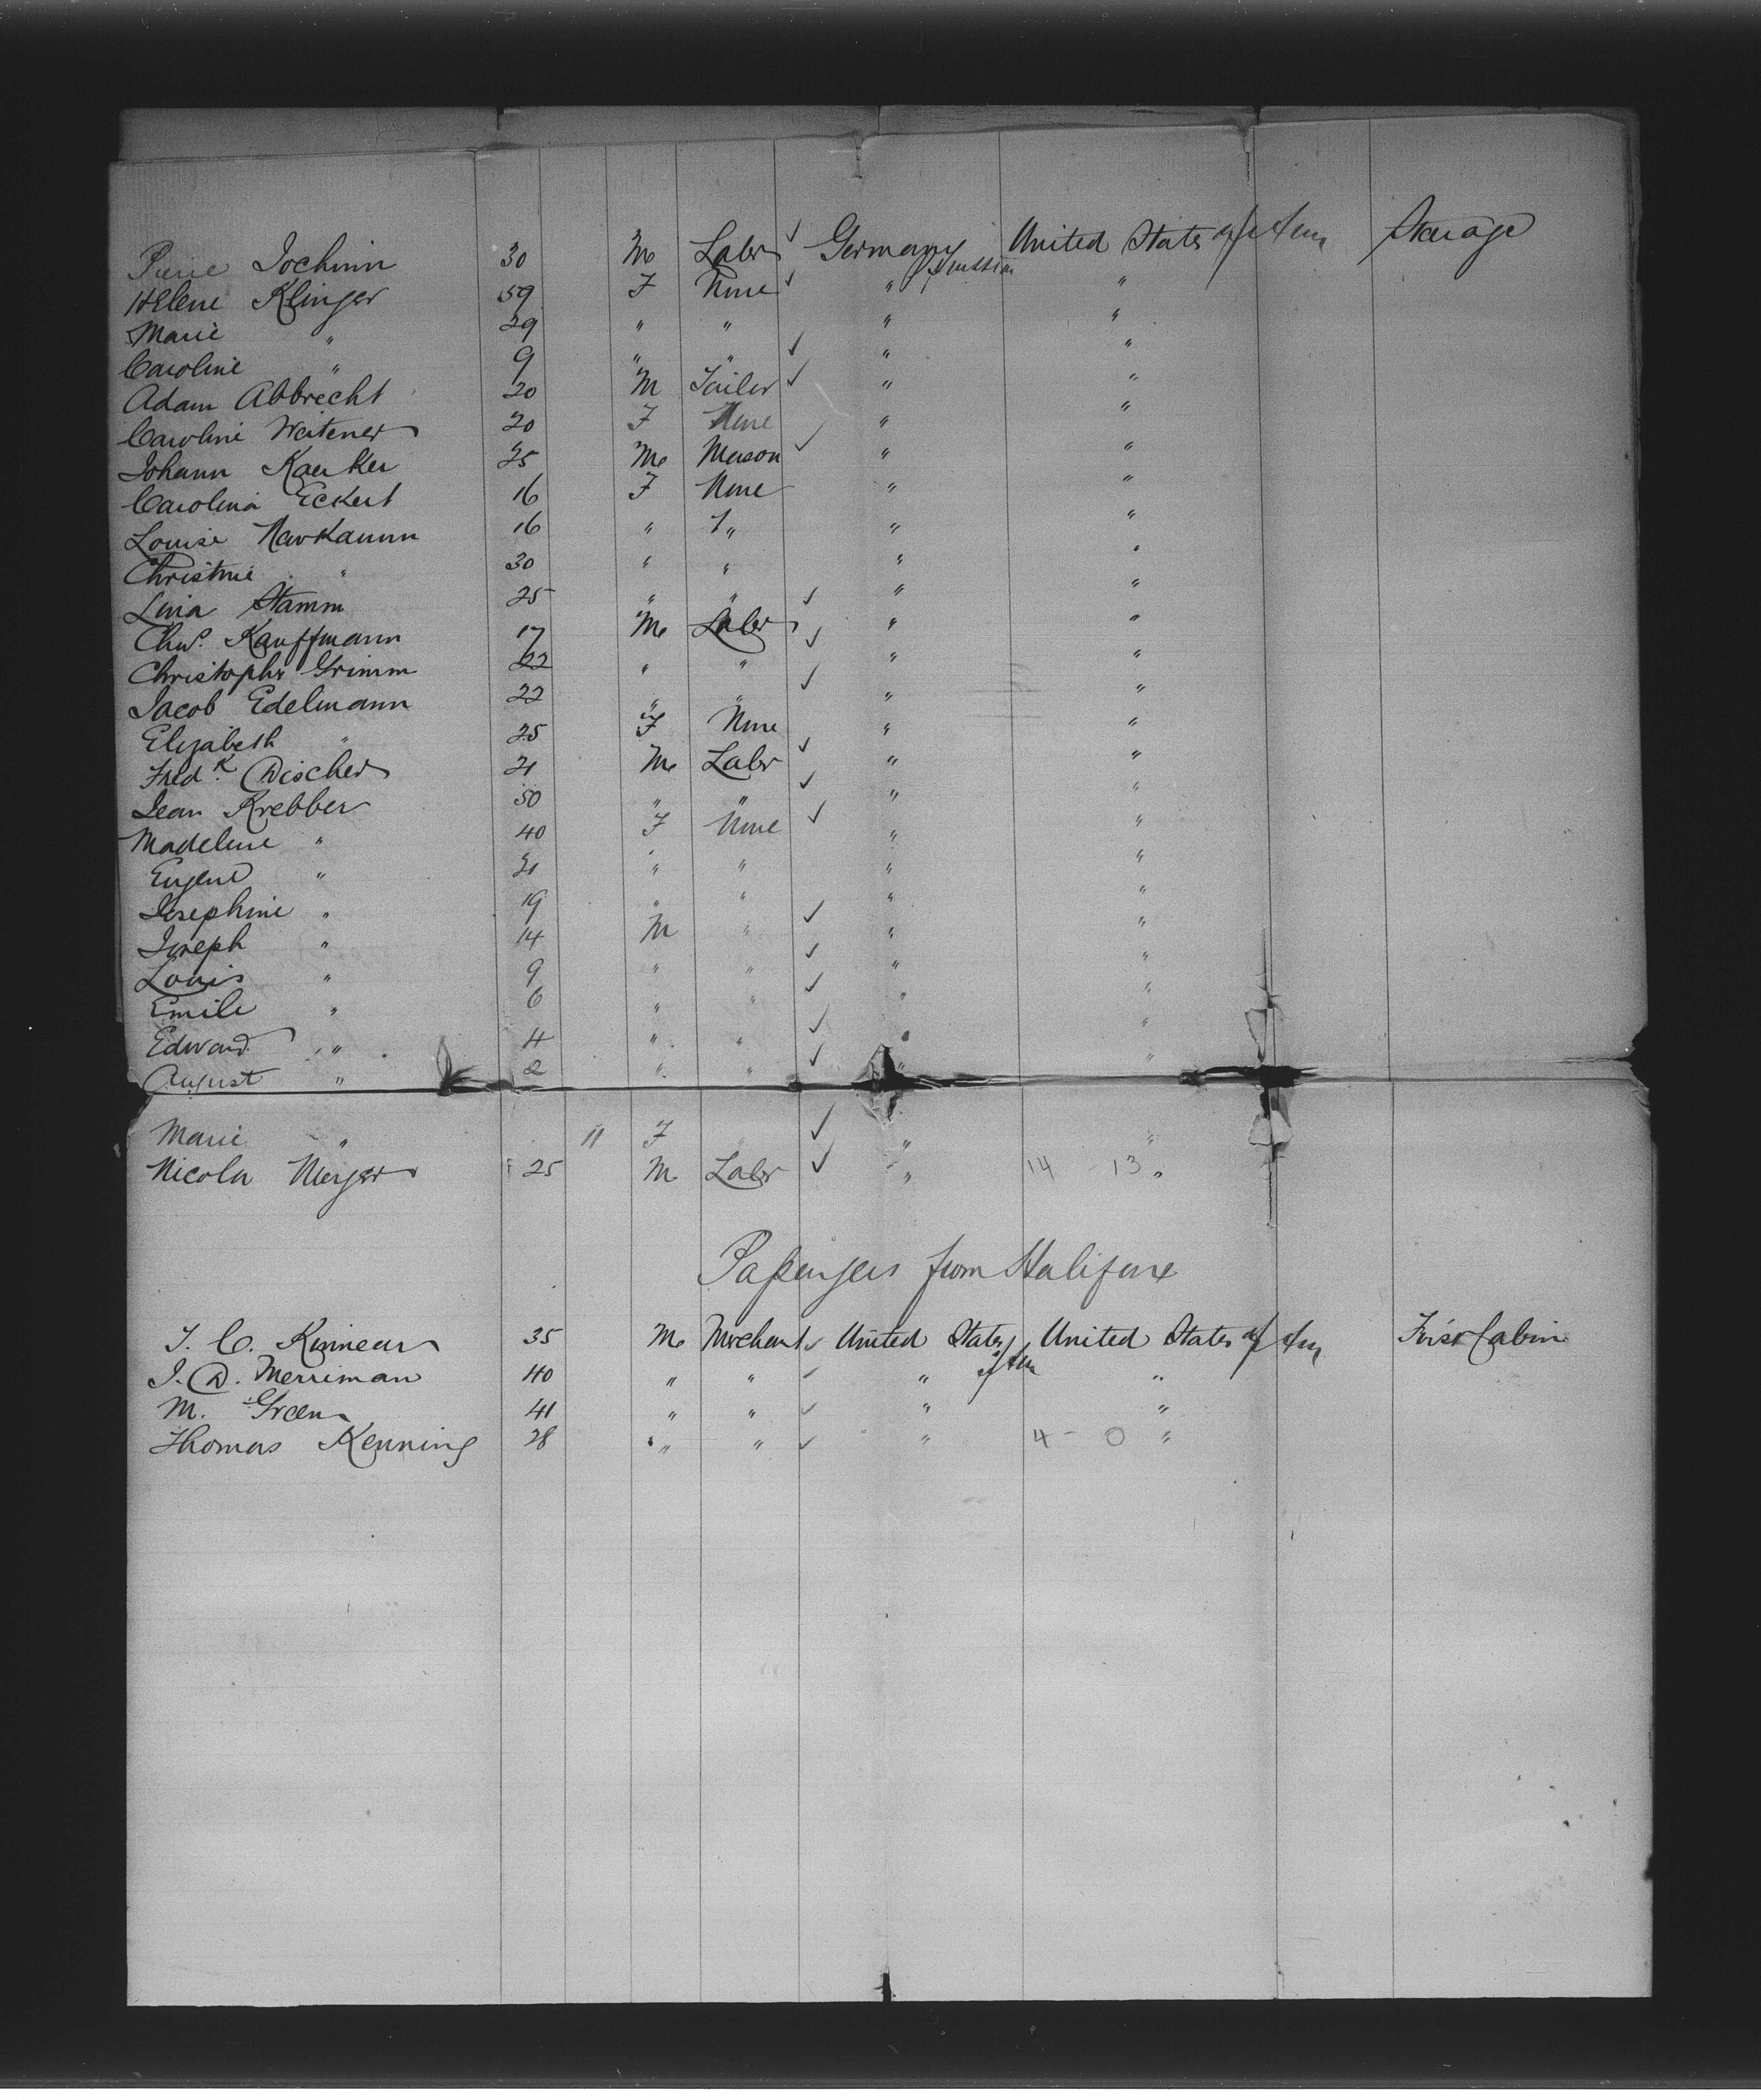 Pierre Jochim 30 M Labr ✓ Germany Prussia United States of Am Steerage
Helene Klinger 59 F None ✓ " "
Marie " 29 " " " "
Caroline " 9 " " ✓ " "
Adam Abbrecht 20 M Tailor ✓ " "
Caroline Weitener 20 F None " "
Johann Kaerker 25 M Mason ✓ " "
Carolina Eckert 16 F None " "
Louise Newkamm 16 " " " "
Christine " 30 " " " "
Lina Stamm 25 " " ✓ " "
Chs. Kauffmann 17 M Labr ✓ " "
Christopher Grimm 22 " " ✓ " "
Jacob Edelmann 22 " " " "
Elizabeth " 25 F None " "
Fredk. Discher 21 M Labr ✓ " "
Jean Krebber 50 " " ✓ " "
Madeleine " 40 F None ✓ " "
Eugene " 21 " " " "
Josephine " 19 " " " "
Joseph " 14 M " ✓ " "
Louis " 9 " " ✓ " "
Emile " 6 " " ✓ " "
Edward " 4 " " ✓ " "
August " 2 " " ✓ " "
Marie " 11 F ✓ " "
Nicola Meyer 25 M Labr ✓ " 14 - 13 "
Passengers from Halifax
T. C. Kinnear 35 M Merchant ✓ United States of Am United States of Am First Cabin
J. D. Merriman 40 " " ✓ " "
M. Green 41 " " ✓ " "
Thomas Kenning 28 " " ✓ " 4 - 0 "